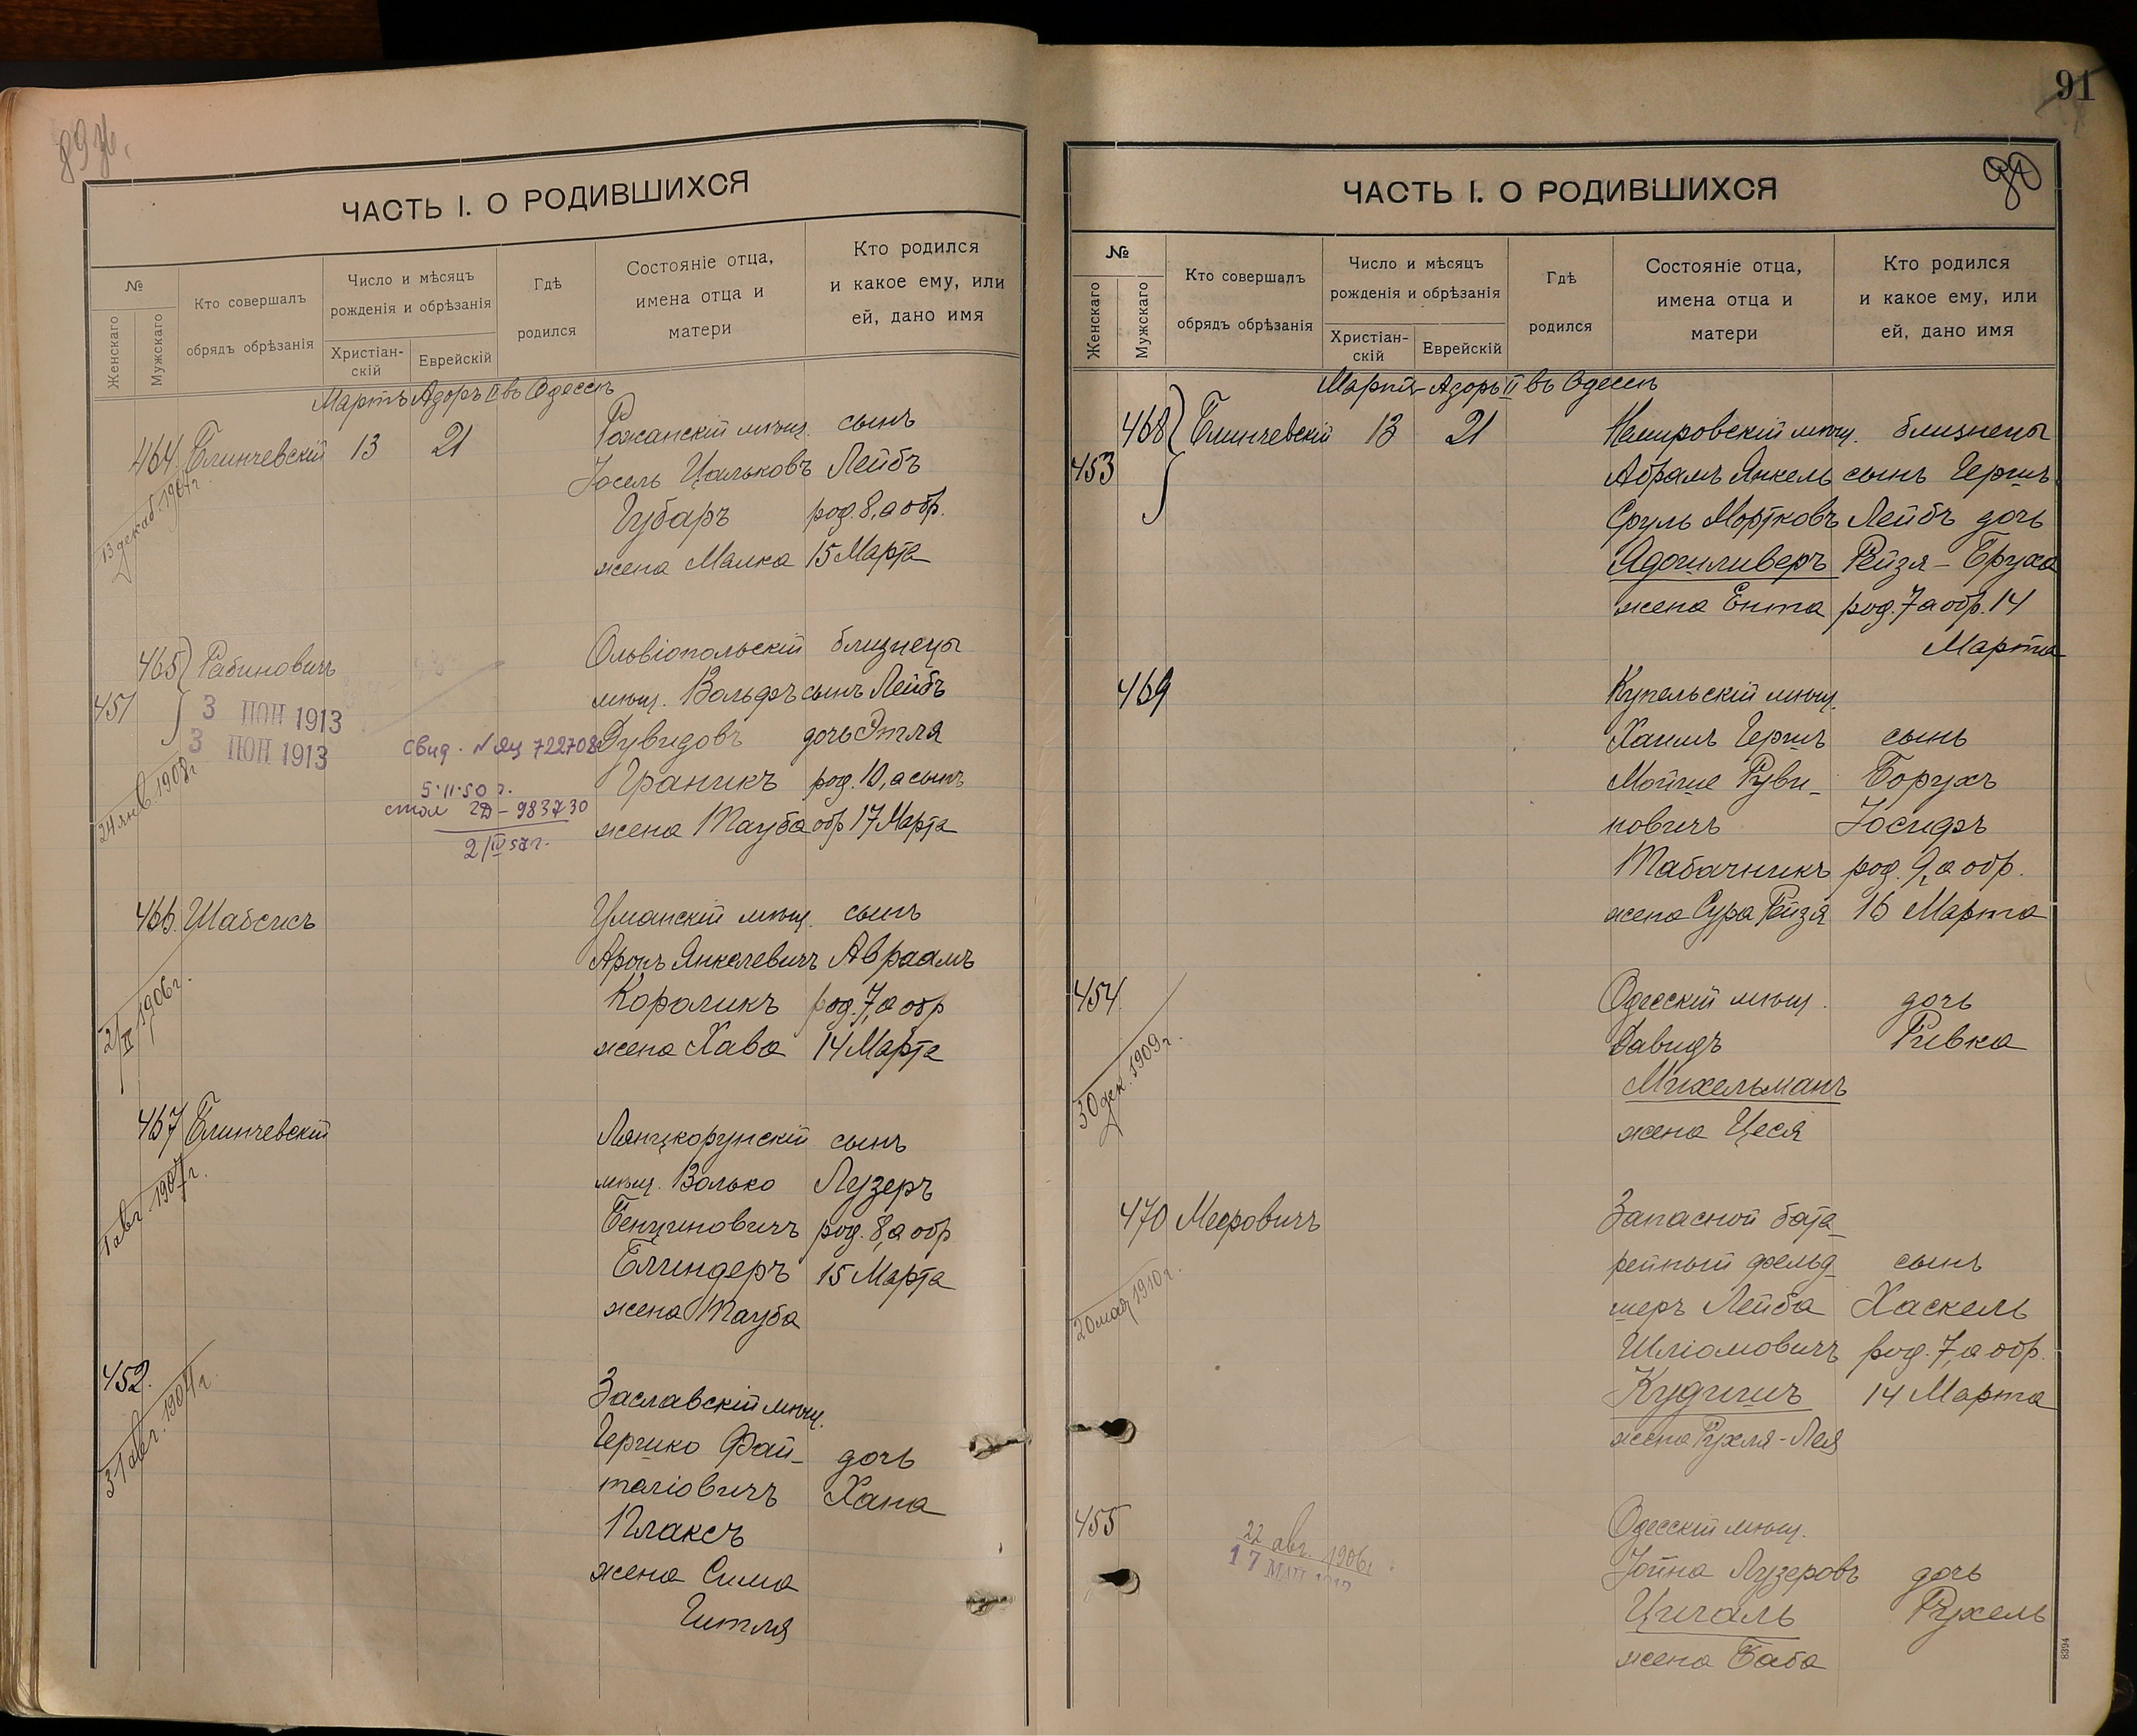 89 об.
ЧАСТЬ I. О РОДИВШИХСЯ
№
Женскаго
Мужскаго
Кто совершалъ
обрядъ обрѣзанія
Число и мѣсяцъ
рожденія и обрѣзанія
Христіан-
скій
Еврейскій
Гдѣ
родился
Состояніе отца,
имена отца и
матери
Кто родился
и какое ему, или
ей, дано имя
Мартъ Адоръ II въ Одессѣ
464 Блинчевскій 13 21 Рожанскій мѣщ. сынъ
Іосель Цальковъ Лейбъ
Губаръ род. 8, а обр.
жена Малка 15 Марта
13 декаб. 1907г.
465 Рабиновичъ Ольвіопольскій близнецы
451 мѣщ. Вольфъ сынъ Лейбъ
3 ІЮН 1913
3 ІЮН 1913
свид. № ЯЦ 722708 Дувидовъ дочь Этля
5.11.50 г. Граникъ род. 10, а сынъ
стол 2Д-983730
2/IV 57г.
жена Тауба обр 17 Марта
24 янв. 1908г
466. Шабсисъ Уманскій мѣщ. сынъ
Аронъ Янкелевичъ Авраамъ
Короликъ род. 7, а обр
жена Хава 14 Марта
2/II 1906г.
467 Блинчевскій Лянцкорунскій сынъ
мѣщ. Волько Лузеръ
Бенционовичъ род. 8, а обр
Блиндеръ 15 Марта
жена Тауба
1 авг 1907г.
452. Заславскій мѣщ.
Гершко Фай-
теліовичъ дочь
Плаксъ Хана
жена Сима
Гитля
31 авг. 1904г.
91
90
ЧАСТЬ I. О РОДИВШИХСЯ
№
Женскаго
Мужскаго
Кто совершалъ
обрядъ обрѣзанія
Число и мѣсяцъ
рожденія и обрѣзанія
Христіан-
скій
Еврейскій
Гдѣ
родился
Состояніе отца,
имена отца и
матери
Кто родился
и какое ему, или
ей, дано имя
Мартъ Адоръ II въ Одессѣ
468 Блинчевскій 13 21 Немировскій мѣщ. близнецы
453 Абрамъ Янкель сынъ Гершъ
Сруль Мортковъ Лейбъ дочь
Ядошливеръ Рейзя-Бруха
жена Ента род. 7 а обр. 14
Марта
469 Купельскій мѣщ.
Хаимъ Гершъ сынъ
Мойше Руви- Борухъ
новичъ Іосифъ
Табачникъ род. 9, а обр.
жена Сура Рейзя 16 Марта
454 Одесскій мѣщ. дочь
Давидъ Ривка
Михельманъ
жена Цеся
30 дек. 1909г.
470 Мееровичъ Запасной бата-
рейный фельд- сынъ
шеръ Лейба Хаскель
Шліомовичъ род. 7, а обр.
Кудишъ 14 Марта
жена Рухля-Лея
20 мая 1910г.
455 Одесскій мѣщ.
22 авг. 1906г.
17 МАЯ
Іойна Лузеровъ дочь
Цигаль Рухель
жена Баба
8394